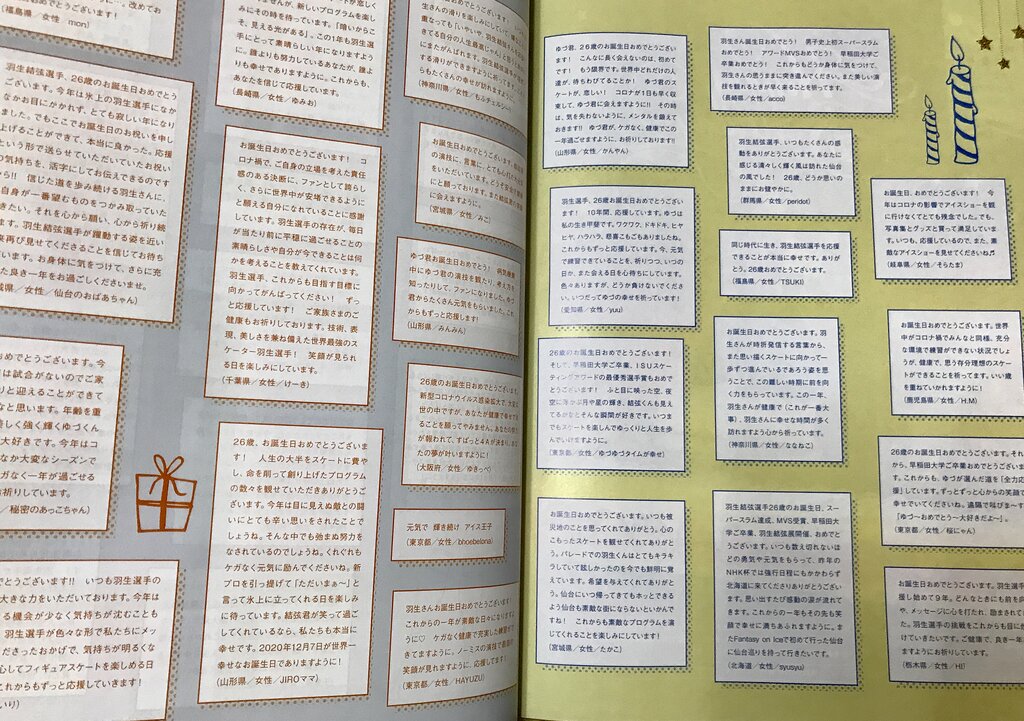 (福島県／女性／mon)
羽生結弦選手、26歳のお誕生日おめでとう
ございます。今年は氷上の羽生選手になか
なかお目にかかれず、とても寂しい年になり
ました。でもここでお誕生日のお祝いを申し
上げることができて、本当に良かった。応援
という形で送らせていただいていたお祝い
の気持ちを、活字にしてお伝えできるのです
から!! 信じた道を歩み続ける羽生さんに、
自身が一番望むものをつかみ取っていた
きたい。それを心から願い、心から祈り
ます。羽生結弦選手が躍動する姿を近い
来再び見せてくださることを信じてお待ち
ています。お身体に気をつけて、さらに充
た良き一年をお過ごしくださいませ。
城県／女性／仙台のおばあちゃん)
おめでとうございます。今
は試合がないのでご家
りと迎えることができて
なと思います。年齢を重
美しく強く輝くゆづくん
大好きです。今年はコ
なか大変なシーズンで
ケガなく一年が過ごせる
お祈りしています。
／秘密のあっこちゃん)
でとうございます!! いつも羽生選手の
大きな力をいただいております。今年は
る機会が少なく気持ちが沈むことも
羽生選手が色々な形で私たちにメッ
ださったおかげで、気持ちが明るくな
心してフィギュアスケートを楽しめる日
これからもずっと応援していきます！
ませんが、新しいプログラムを楽し
みにその時を待っています。「暗いからこ
そ、見える光がある」。この1年も羽生選
手にとって素晴らしい年になりますよう
に。誰よりも努力しているあなたが、誰よ
りも幸せでありますように。これからも、
あなたを信じて応援しています。
(長崎県／女性／ゆみお)
お誕生日おめでとうございます！ コ
ロナ禍で、ご自身の立場を考えた責任
感のある決断に、ファンとして誇らし
く、さらに世界中が安堵できるように
と願える自分になれていることに感謝
しています。羽生選手の存在が、毎日
が当たり前に平穏に過ごせることの
素晴らしさや自分が今できることは何
かを考えることを教えてくれています。
羽生選手、これからも目指す目標に
向かってがんばってください！ ずっ
と応援しています！ ご家族さまのご
健康もお祈りしております。技術、表
現、美しさを兼ね備えた世界最強のス
ケーター羽生選手！ 笑顔が見られ
る日を楽しみにしています。
(千葉県／女性／けーき)
26歳、お誕生日おめでとうございま
す！ 人生の大半をスケートに費や
し、命を削って創り上げたプログラム
の数々を観せていただきありがとうご
ざいます。今年は目に見えぬ敵との闘
いにとても辛い思いをされたことで
しょうね。そんな中でも弛まぬ努力を
なされているのでしょうね。くれぐれも
ケガなく元気に励んでくださいね。新
プロを引っ提げて「ただいまぁ〜」と
言って氷上に立ってくれる日を楽しみ
に待っています。結弦君が笑って過ご
してくれているなら、私たちも本当に
幸せです。2020年12月7日が世界一
幸せなお誕生日でありますように！
(山形県／女性／JIROママ)
(神奈川県／女性／もふチェルシー)
(宮城県／女性／みこ)
ゆづ君お誕生日おめでとう！
中にゆづ君の演技を観たり、考え方を
知ったりして、ファンになりました。ゆづ
君からたくさん元気をもらいました。これ
からもずっと応援します！
(山形県／みんみん)
26歳のお誕生日おめでとうございます。
新型コロナウイルス感染拡大で、大変な
世の中ですが、あなたが健康で幸せであ
ることを願ってやみません。あなたの努力
が報われて、ずばっと4Aが決まり、あな
たの夢が叶いますように！
(大阪府／女性／ゆきっぺ)
元気で 輝き続け アイス王子
(東京都／女性／bhoebeloria)
羽生さんお誕生日おめでとうございます！
これからの一年が素敵な日々になりますよ
うに♡ ケガなく健康で充実した練習がで
きてますように。ノーミスの演技で最高の
笑顔が見れますように、応援してます！
(東京都／女性／HAYUZU)
ゆづ君、26歳のお誕生日おめでとうござい
ます！ こんなに長く会えないのは、初めて
です！ もう限界です。世界中どれだけの人
達が、待ちわびてることか！ ゆづ君のス
ケートが、恋しい！ コロナが1日も早く収
束して、ゆづ君に会えますように!! その時
は、気を失わないように、メンタルを鍛えて
おきます!! ゆづ君が、ケガなく、健康でこの
一年過ごせますように、お祈りしております!!
(山形県／女性／かんやん)
羽生選手、26歳お誕生日おめでとうござい
ます！ 10年間、応援しています。ゆづは
私の生き甲斐です。ワクワク、ドキドキ、ヒヤ
ヒヤ、ハラハラ、悲喜こもごもありましたね。
これからもずっと応援しています。今、元気
で練習できていることを、祈りつつ、いつの
日か、また会える日を心待ちにしています。
色々ありますが、どうか負けないでください。
いつだってゆづの幸せを祈っています！
(愛知県／女性／yuu)
26歳のお誕生日おめでとうございます！
そして、早稲田大学ご卒業、ISUスケー
ティングアワードの最優秀選手賞もおめで
とうございます！ ふと目に映った空、夜
空に浮かぶ月や星の輝き、結弦くんも見え
てるかなとそんな瞬間が好きです。いつま
でもスケートを楽しんでゆっくりと人生を歩
んでいけますように。
(東京都／女性／ゆづゆづタイムが幸せ)
お誕生日おめでとうございます。いつも被
災地のことを思ってくれてありがとう。心の
こもったスケートを観せてくれてありがと
う。パレードでの羽生くんはとてもキラキ
ラしていて眩しかったのを今でも鮮明に覚
えています。希望を与えてくれてありがと
う。仙台にいつ帰ってきてもホッとできる
よう仙台も素敵な街にならないといかんで
すね！ これからも素敵なプログラムを
演じてくれることを楽しみにしています！
(宮城県／女性／たかこ)
羽生さん誕生日おめでとう！ 男子史上初スーパースラム
おめでとう！ アワードMVSおめでとう！ 早稲田大学ご
卒業おめでとう！ これからもどうか身体に気をつけて、
羽生さんの思うままに突き進んでください。また美しい演
技を観れるときが早く来ることを祈ってます。
(長崎県／女性／acco)
羽生結弦選手、いつもたくさんの感
動をありがとうございます。あなたに
感じる清々しく輝く風は訪れた仙台
の風でした！ 26歳、どうか思いの
ままにお健やかに。
(群馬県／女性／peridot)
同じ時代に生き、羽生結弦選手を応援
できることが本当に幸せです。ありが
とう。26歳おめでとうございます。
(福島県／女性／TSUKI)
お誕生日おめでとうございます。羽
生さんが時折発信する言葉から、
また思い描くスケートに向かって一
歩ずつ進んでいるであろう姿を思
うことで、この難しい時期に前を向
く力をもらっています。この一年、
羽生さんが健康で（これが一番大
事）、羽生さんに幸せな時間が多く
訪れますよう心から祈っています。
(神奈川県／女性／ななねこ)
羽生結弦選手26歳のお誕生日、スー
パースラム達成、MVS受賞、早稲田大
学ご卒業、羽生結弦展開催、おめでと
うございます。いつも数え切れないほ
どの勇気や元気をもらって、昨年の
NHK杯では強行日程にもかかわらず
北海道に来てくださりありがとうござい
ます。思い出すたび感動の涙が流れて
きます。これからの一年もその先も笑
顔で幸せに満ちあふれますように。ま
たFantasy on Iceで初めて行った仙台
に仙台巡りを持って行きたいです。
(北海道／女性／syusyu)
お誕生日、おめでとうございます！ 今
年はコロナの影響でアイスショーを観
に行けなくてとても残念でした。でも、
写真集とグッズと買って満足していま
す。いつも、応援しているので、また、素
敵なアイスショーを見せてくださいね♬
(岐阜県／女性／そらたま)
お誕生日おめでとうございます。世界
中がコロナ禍でみんなと同様、充分
な環境で練習ができない状況でしょう
が、健康で、思う存分理想のスケー
トができることを祈ってます。いい歳
を重ねていかれますように！
(鹿児島県／女性／H.M)
26歳のお誕生日おめでとうございます。それ
から、早稲田大学ご卒業おめでとうございま
す。これからも、ゆづが選んだ道を「全力応
援」しています。ずっとずっと心からの笑顔で
幸せでいてくださいね。遠隔で叫びま〜す。
「ゆづ〜おめでとう〜大好きだよ〜」。
(東京都／女性／桜にゃん)
お誕生日おめでとうございます。羽生選手
(栃木県／女性／HI)